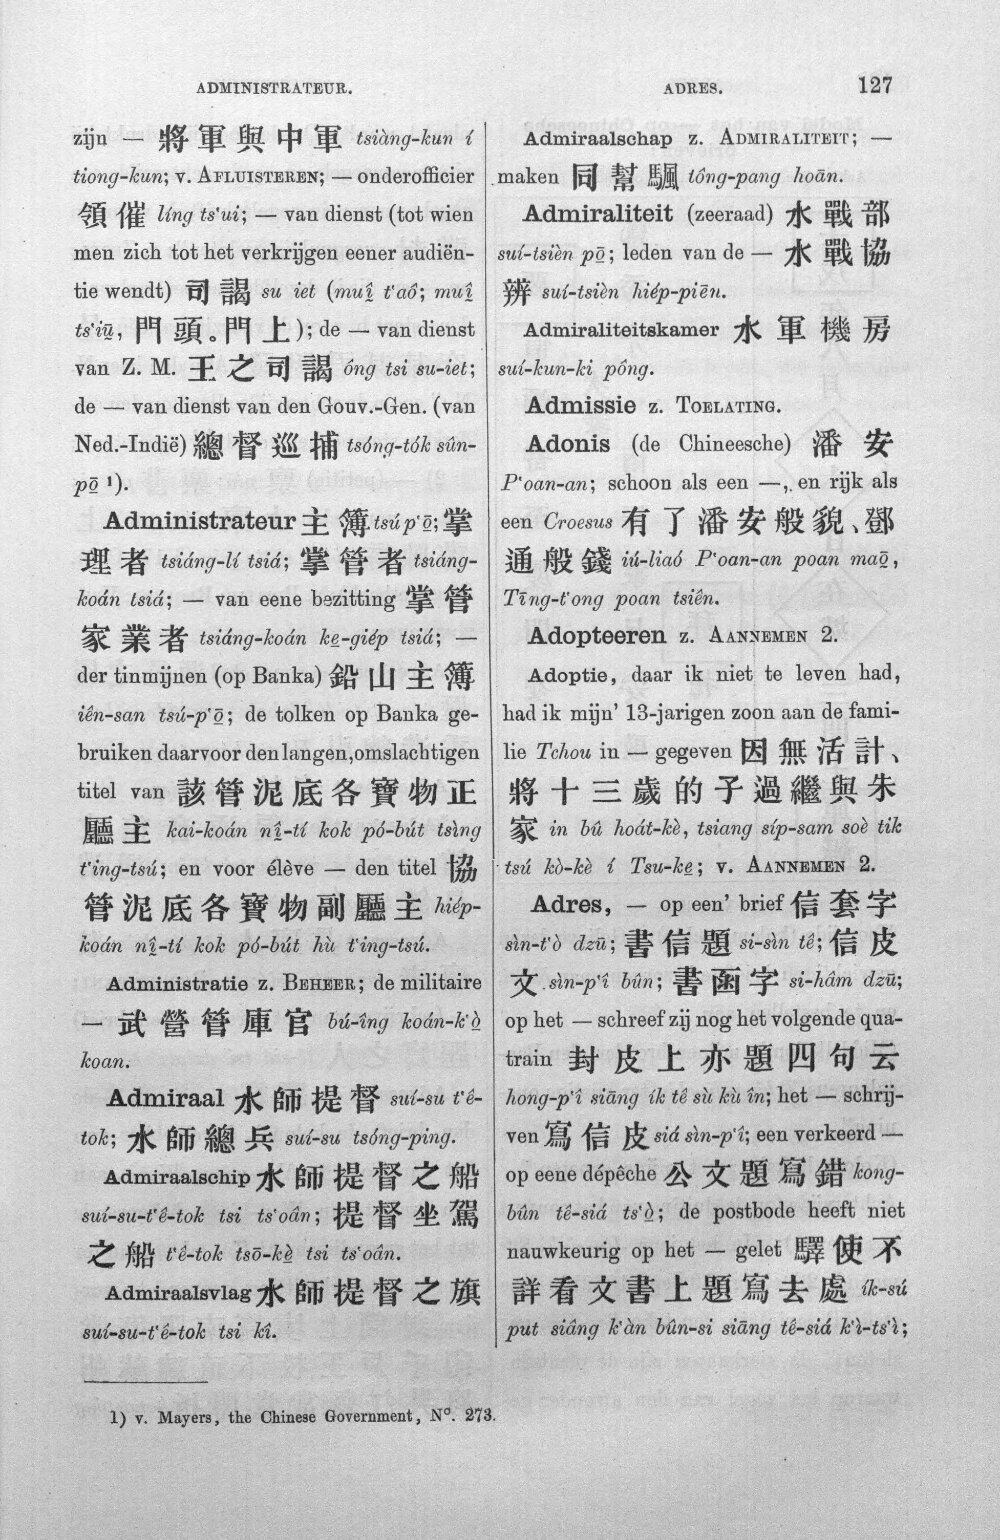 ADMINISTRATEUR.
ADRES.
127
zijn — 將軍與中軍 tsiàng-kun í
tiong-kun; v. AFLUISTEREN; — onderofficier
領催 líng ts‘ui; — van dienst (tot wien
men zich tot het verkrijgen eener audiën-
tie wendt) 司謁 su iet (muî t‘aô; muî
ts‘iū, 門頭。門上); de — van dienst
van Z. M. 王之司謁 óng tsi su-iet;
de — van dienst van den Gouv.-Gen. (van
Ned.-Indië) 總督巡捕 tsóng-tók sûn-
pō ¹).
Administrateur 主簿 tsú p‘ō; 掌
理者 tsiáng-lí tsiá; 掌管者 tsiáng-
koán tsiá; — van eene bezitting 掌管
家業者 tsiáng-koán ke-giép tsiá; —
der tinmijnen (op Banka) 鉛山主簿
iên-san tsú-p‘ō; de tolken op Banka ge-
bruiken daarvoor den langen, omslachtigen
titel van 該管泥底各寶物正
廳主 kai-koán nî-tí kok pó-bút tsìng
t‘ing-tsú; en voor élève — den titel 協
管泥底各寶物副廳主 hiép-
koán nî-tí kok pó-bút hù t‘ing-tsú.
Administratie z. BEHEER; de militaire
— 武營管庫官 bú-îng koán-k‘ò
koan.
Admiraal 水師提督 suí-su t‘ê-
tok; 水師總兵 suí-su tsóng-ping.
Admiraalschip 水師提督之船
suí-su-t‘ê-tok tsi ts‘oân; 提督坐駕
之船 t‘ê-tok tsō-kè tsi ts‘oân.
Admiraalsvlag 水師提督之旗
suí-su-t‘ê-tok tsi kî.
1) v. Mayers, the Chinese Government, N°. 273.
Admiraalschap z. ADMIRALITEIT; —
maken 同幫颿 tông-pang hoān.
Admiraliteit (zeeraad) 水戰部
suí-tsièn pō; leden van de — 水戰協
辨 suí-tsièn hiép-piēn.
Admiraliteitskamer 水軍機房
suí-kun-ki pông.
Admissie z. TOELATING.
Adonis (de Chineesche) 潘安
P‘oan-an; schoon als een —, en rijk als
een Croesus 有了潘安般貌、鄧
通般錢 iú-liaó P‘oan-an poan maō,
Tīng-t‘ong poan tsiên.
Adopteeren z. AANNEMEN 2.
Adoptie, daar ik niet te leven had,
had ik mijn’ 13-jarigen zoon aan de fami-
lie Tchou in — gegeven 因無活計、
將十三歲的子過繼與朱
家 in bû hoát-kè, tsiang síp-sam soè tik
tsú kò-kè í Tsu-ke; v. AANNEMEN 2.
Adres, — op een’ brief 信套字
sìn-t‘ò dzū; 書信題 si-sìn tê; 信皮
文 sìn-p‘î bûn; 書函字 si-hâm dzū;
op het — schreef zij nog het volgende qua-
train 封皮上亦題四句云
hong-p‘î siāng ík tê sù kù în; het — schrij-
ven 寫信皮 siá sìn-p‘î; een verkeerd —
op eene dépêche 公文題寫錯 kong-
bûn tê-siá ts‘ò; de postbode heeft niet
nauwkeurig op het — gelet 驛使不
詳看文書上題寫去處 ík-sú
put siâng k‘àn bûn-si siāng tê-siá k‘ì-ts‘ì;